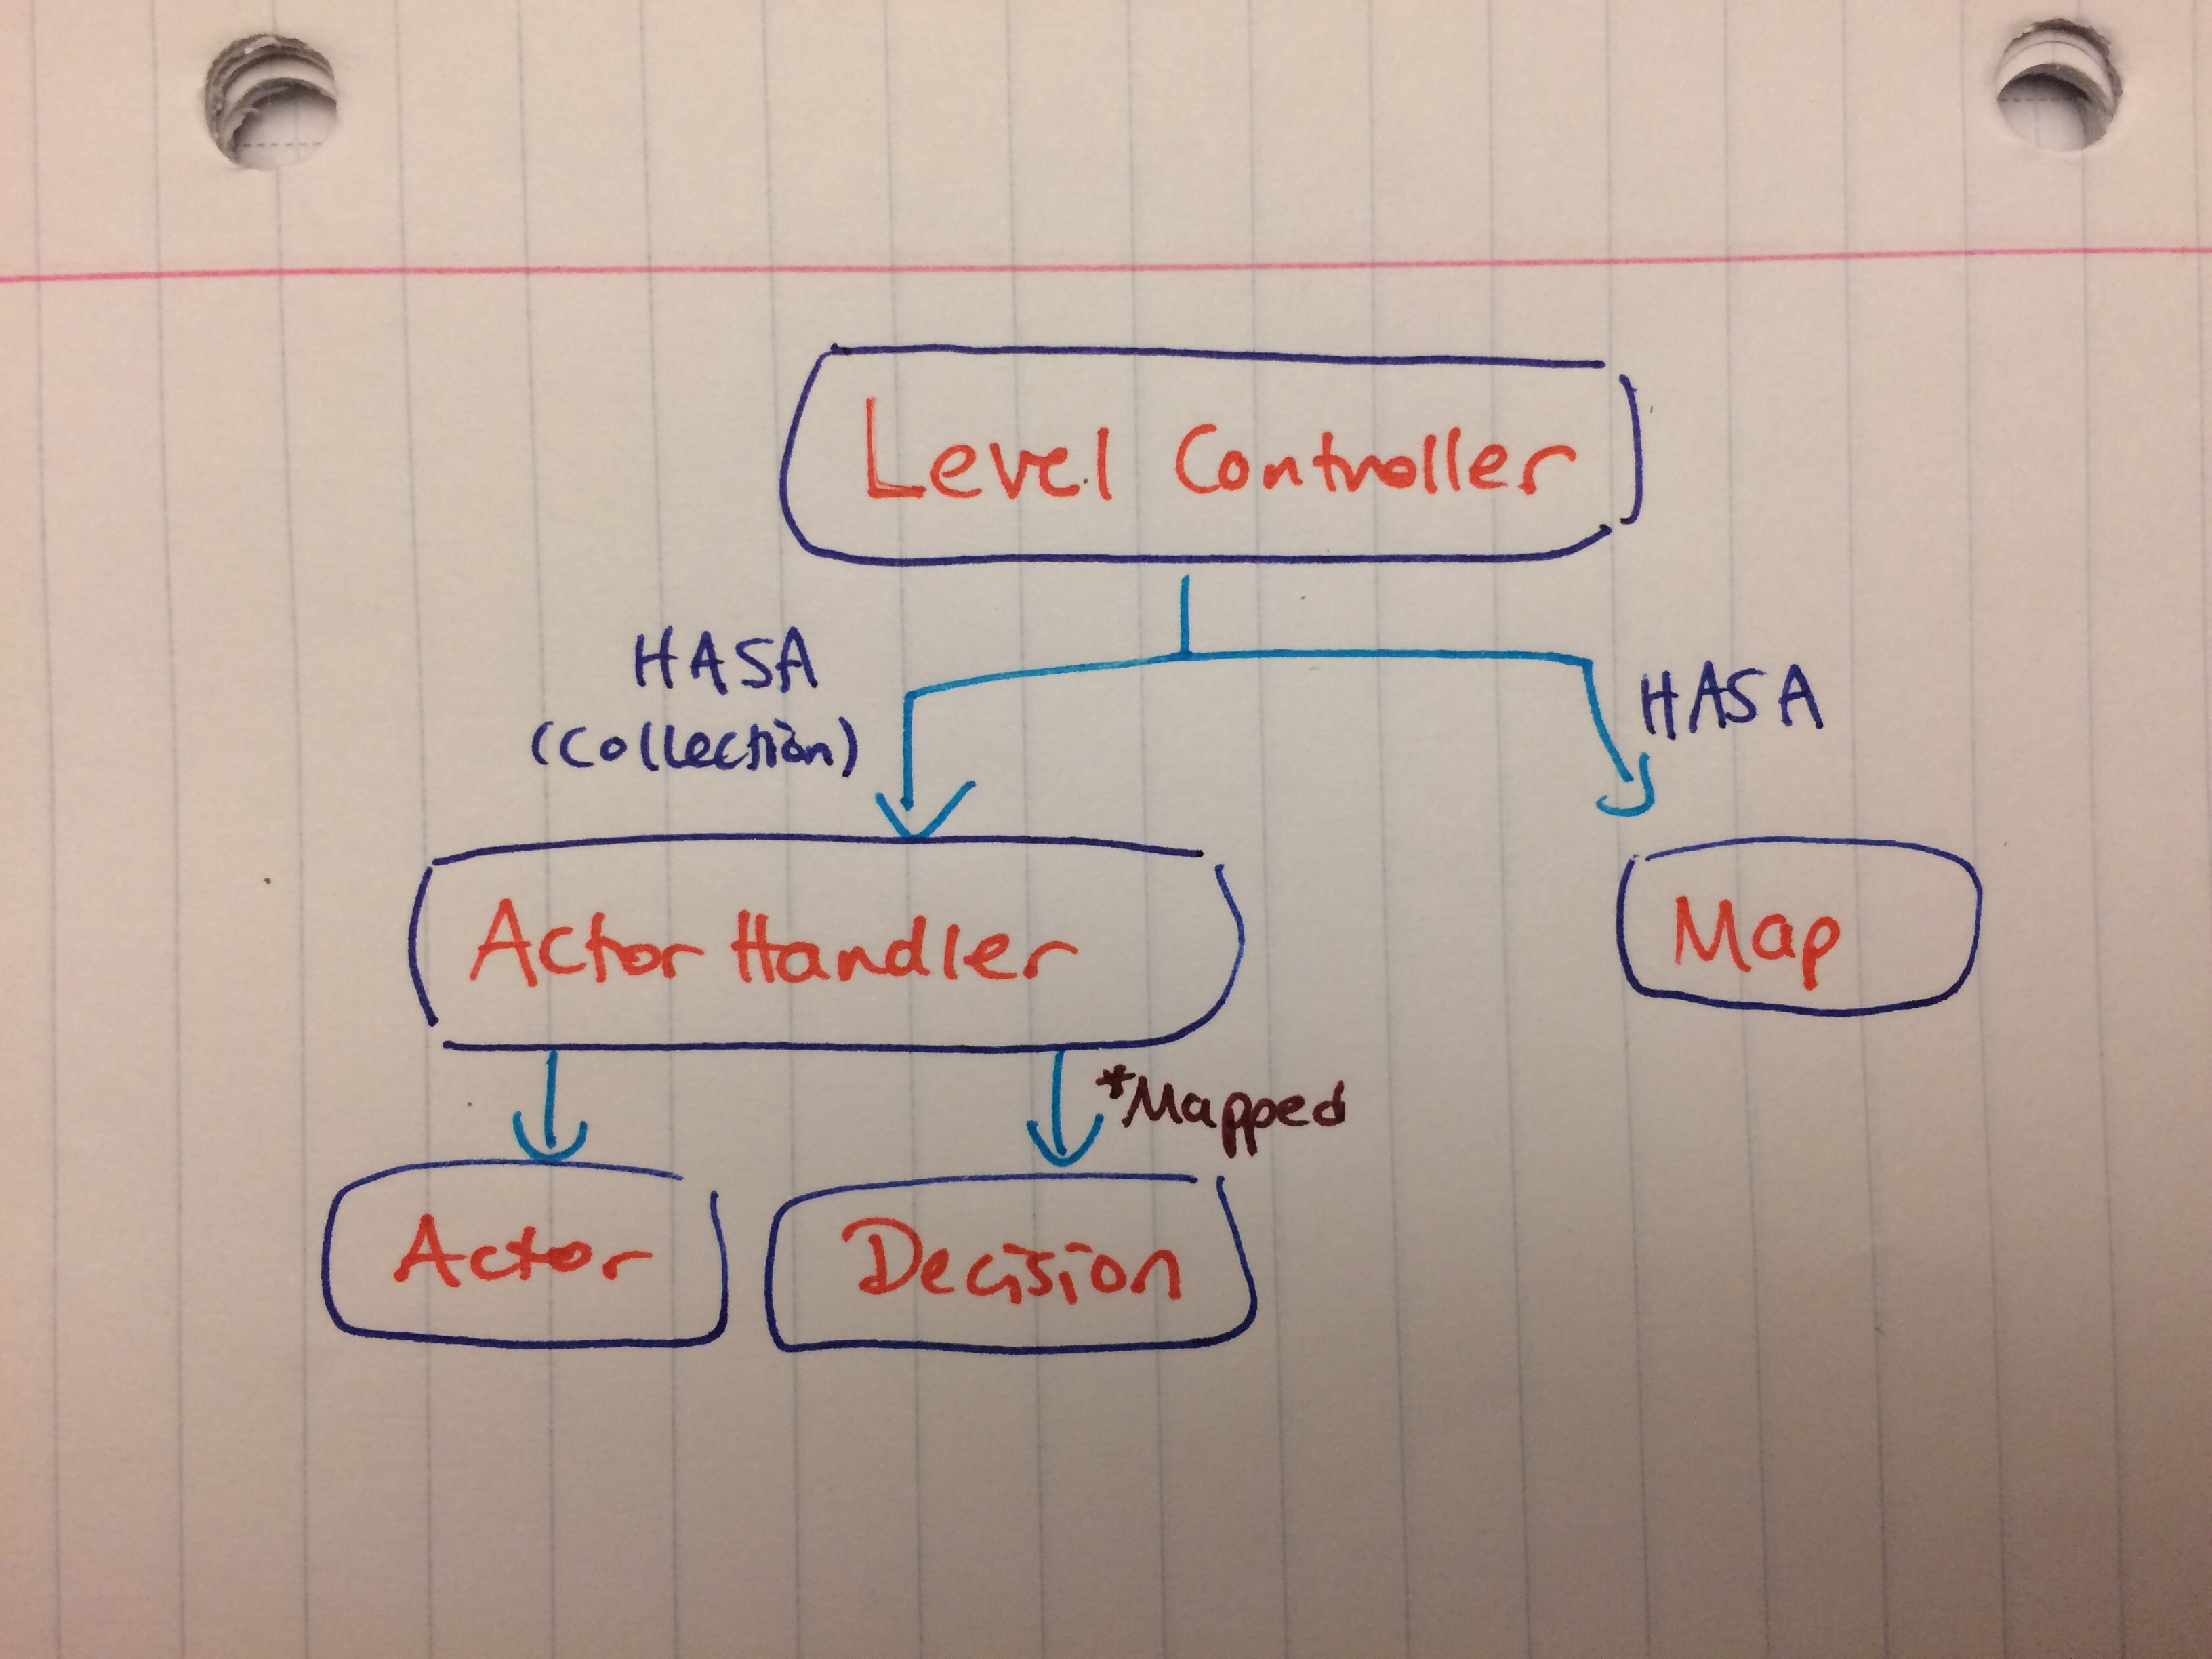 Level Controller
HASA
(Collection)
HASA
Actor Handler
Map
*Mapped
Actor
Decision